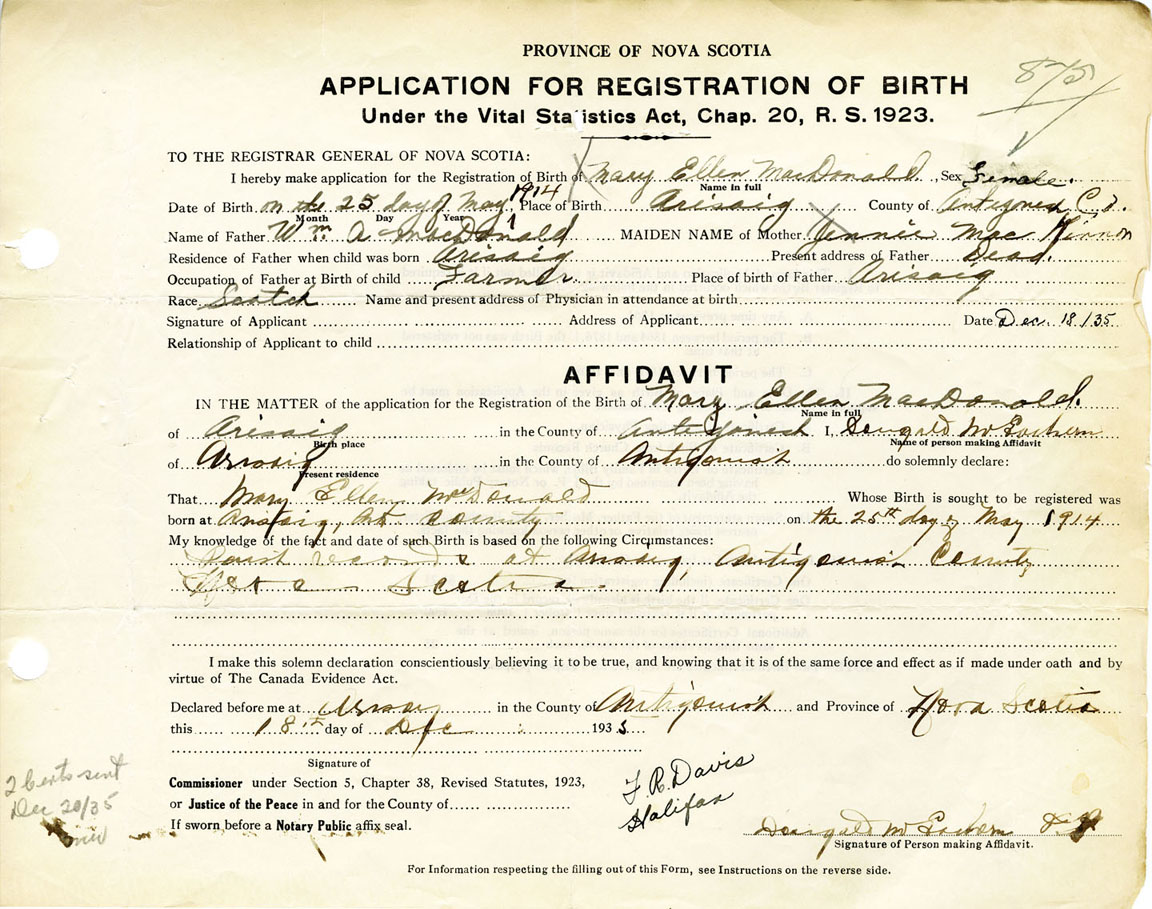 PROVINCE OF NOVA SCOTIA
APPLICATION FOR REGISTRATION OF BIRTH
875
Under the Vital Statistics Act, Chap. 20, R. S. 1923.
TO THE REGISTRAR GENERAL OF NOVA SCOTIA:
I hereby make application for the Registration of Birth of Mary Ellen MacDonald, Sex Female.
Name in full
Date of Birth on the 25 day of May, 1914 Place of Birth Arisaig County of Antigonish
Month Day Year
Name of Father Wm A MacDonald MAIDEN NAME of Mother Jennie Mac Kinnon
Residence of Father when child was born Arisaig Present address of Father Dead.
Occupation of Father at Birth of child Farmer Place of birth of Father Arisaig
Race Scotch Name and present address of Physician in attendance at birth
Signature of Applicant Address of Applicant Date Dec. 18/35
Relationship of Applicant to child
AFFIDAVIT
IN THE MATTER of the application for the Registration of the Birth of Mary Ellen MacDonald.
Name in full
of Arisaig in the County of Antigonish I, Dougald McEachern
Birth place Name of person making Affidavit
of Arisaig in the County of Antigonish do solemnly declare:
Present residence
That Mary Ellen McDonald Whose Birth is sought to be registered was
born at Arisaig, Ant. County on the 25th day of May 1914
My knowledge of the fact and date of such Birth is based on the following Circumstances:
Parish records at Arisaig, Antigonish County
Nova Scotia.
I make this solemn declaration conscientiously believing it to be true, and knowing that it is of the same force and effect as if made under oath and by
virtue of The Canada Evidence Act.
Declared before me at Arisaig in the County of Antigonish and Province of Nova Scotia
this 18th day of Dec 1935
Signature of
Commissioner under Section 5, Chapter 38, Revised Statutes, 1923,
or Justice of the Peace in and for the County of
If sworn before a Notary Public affix seal.
F. R. Davis
Halifax
2 Certs sent
Dec 20/35
Dougald McEachern
Signature of Person making Affidavit.
For Information respecting the filling out of this Form, see Instructions on the reverse side.